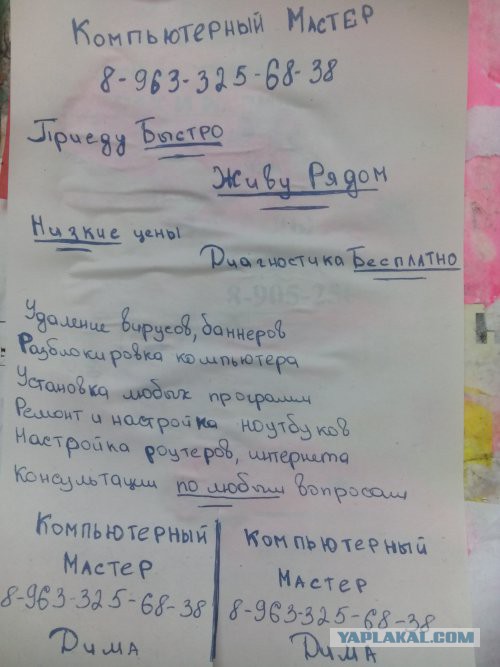 Компьютерный Мастер
8-963-325-68-38
Приеду Быстро
Живу Рядом
Низкие цены
Диагностика Бесплатно
8-905-25
Удаление вирусов, баннеров
Разблокировка компьютера
Установка любых программ
Ремонт и настройка ноутбуков
Настройка роутеров, интернета
Консультации по любым вопросам
Компьютерный
Мастер
8-963-325-68-38
Дима
Компьютерный
Мастер
8-963-325-68-38
Дима
YAPLAKAL.COM